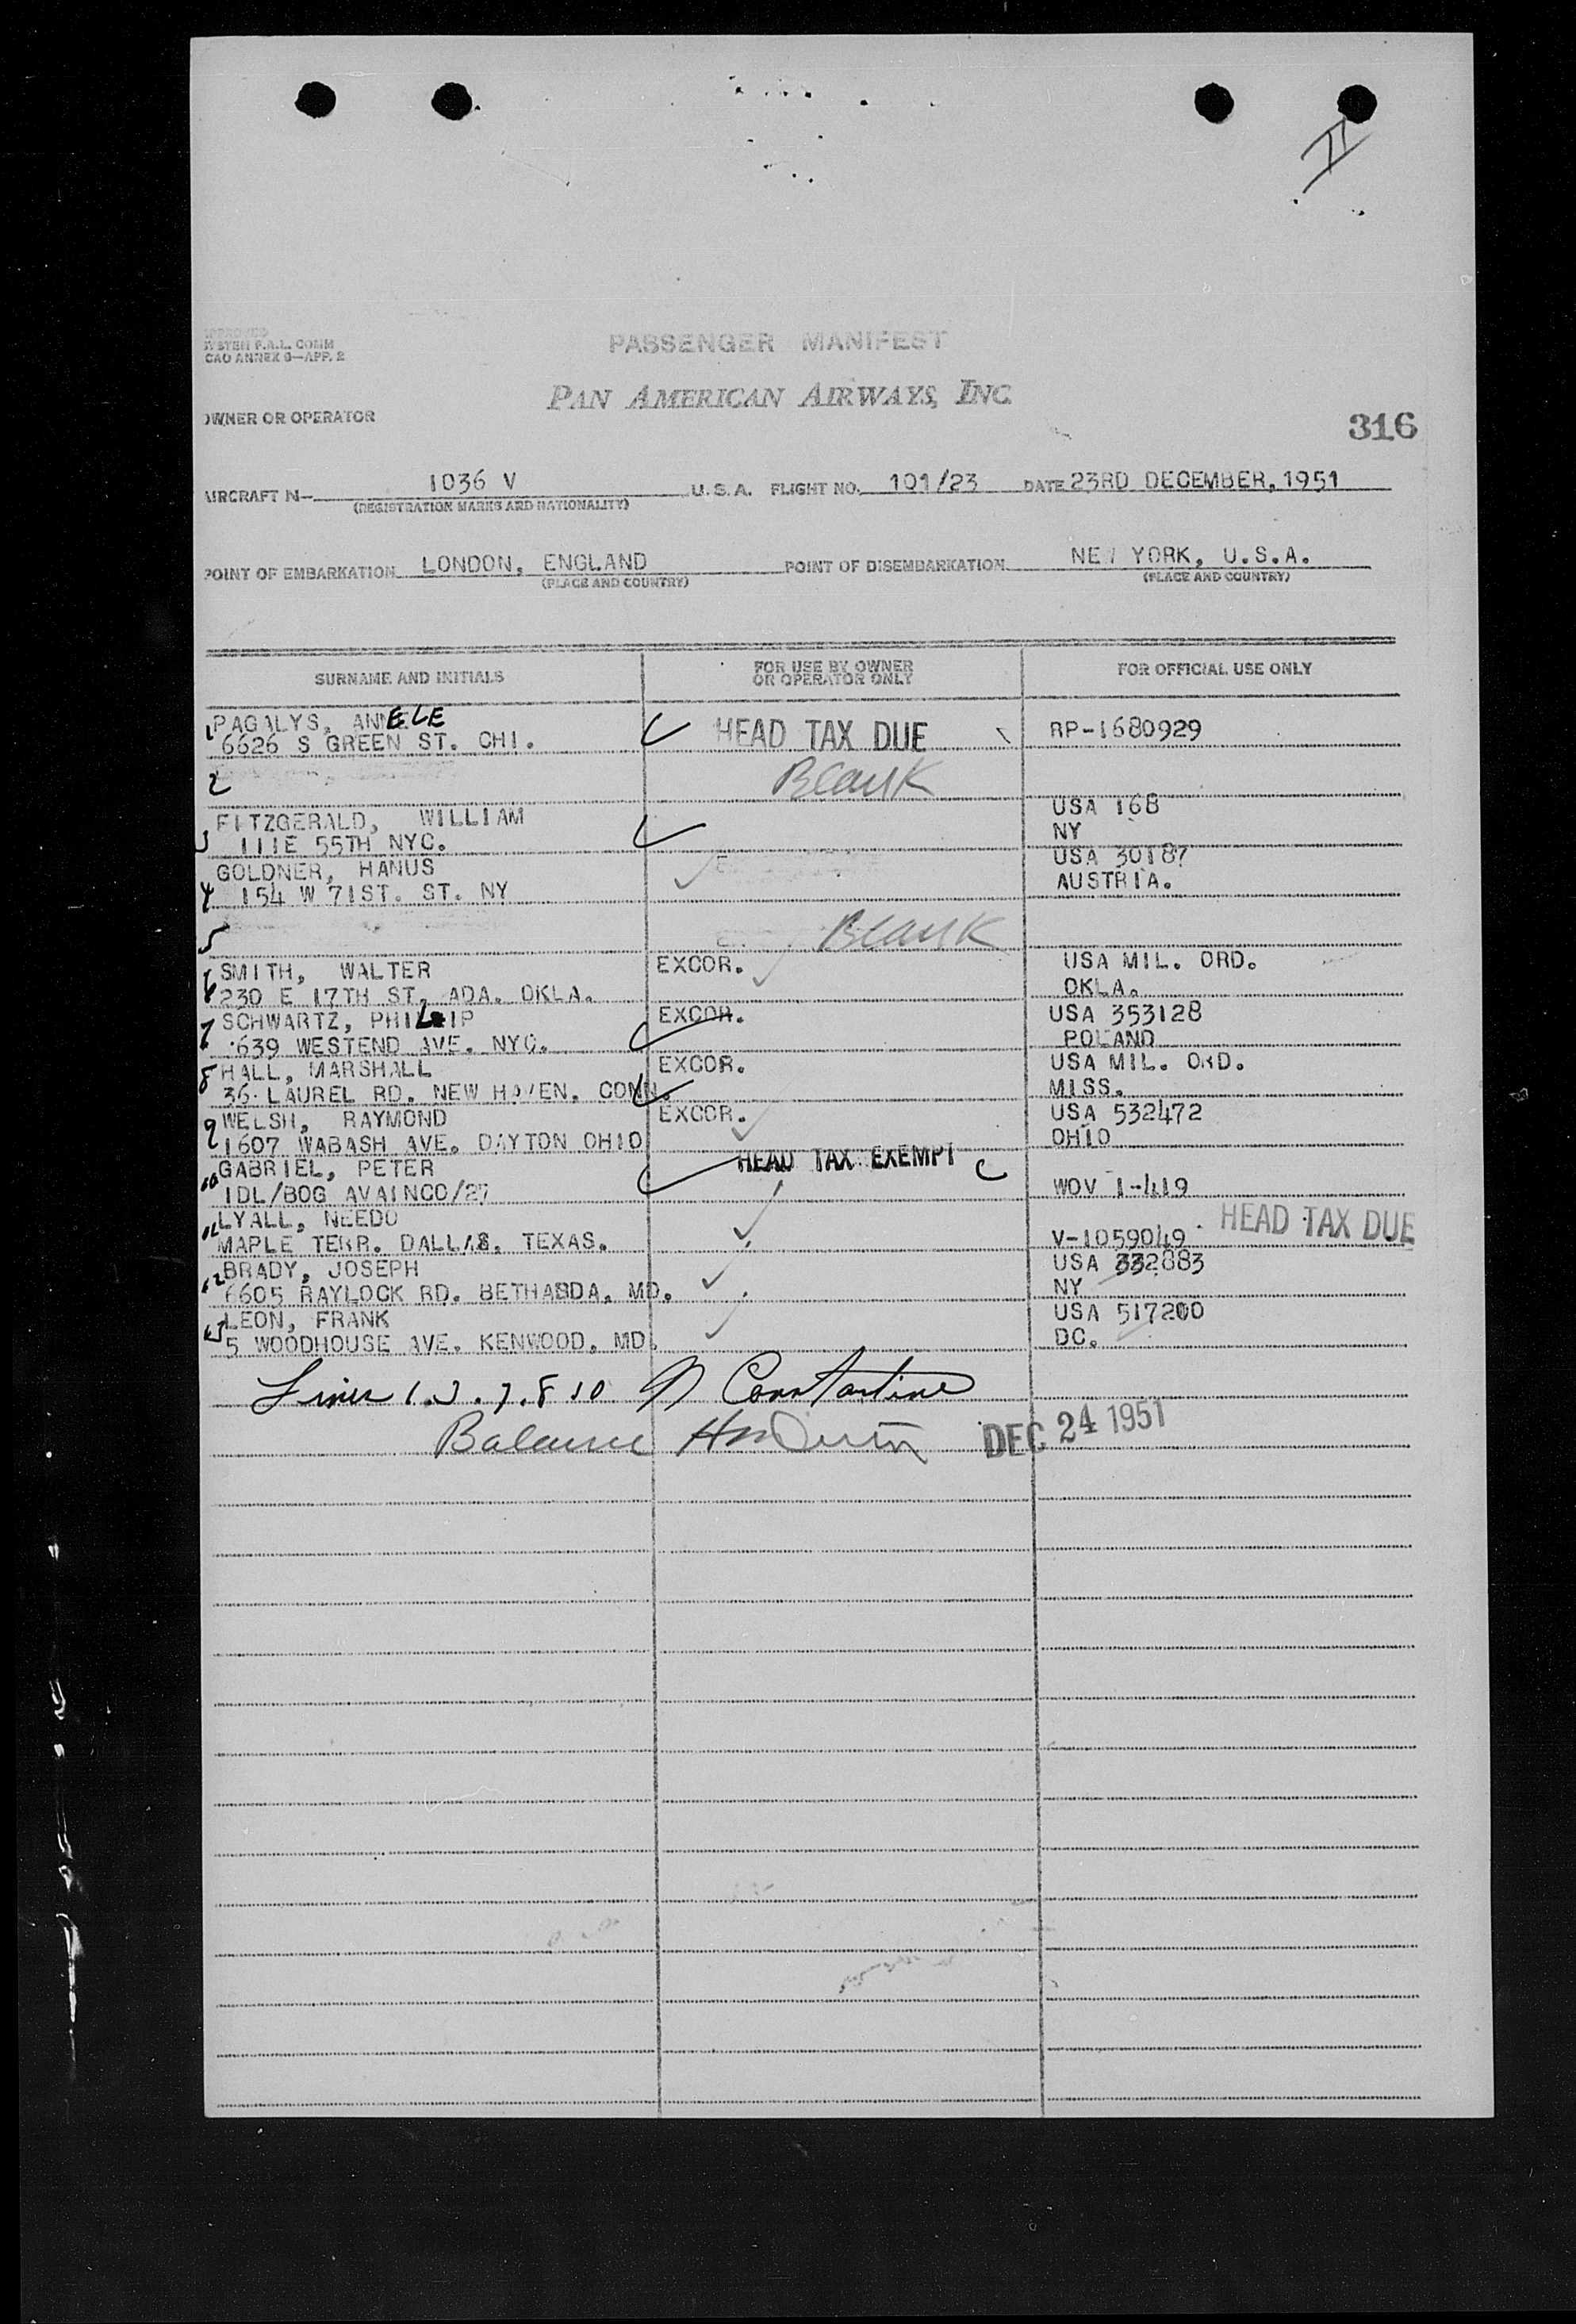 II
APPROVED
SYSTEM F.A.L. COMM
CAO ANNEX 9—APP. 2
PASSENGER MANIFEST
PAN AMERICAN AIRWAYS, INC.
OWNER OR OPERATOR
316
AIRCRAFT N— 1036 V U.S.A. FLIGHT NO. 101/23 DATE 23RD DECEMBER, 1951
(REGISTRATION MARKS AND NATIONALITY)
POINT OF EMBARKATION LONDON, ENGLAND POINT OF DISEMBARKATION NEW YORK, U.S.A.
(PLACE AND COUNTRY) (PLACE AND COUNTRY)
SURNAME AND INITIALS FOR USE BY OWNER OR OPERATOR ONLY FOR OFFICIAL USE ONLY
1 PAGALYS, ANNELE HEAD TAX DUE RP-1680929
6626 S GREEN ST. CHI.
2 Blank
FITZGERALD, WILLIAM USA 168
3 111E 55TH NYC. NY
GOLDNER, HANUS USA 30187
4 154 W 71ST. ST. NY AUSTRIA.
5 Blank
6 SMITH, WALTER EXCOR. USA MIL. ORD.
230 E 17TH ST, ADA. OKLA. OKLA.
7 SCHWARTZ, PHILLIP EXCOR. USA 353128
639 WESTEND AVE. NYC. POLAND
8 HALL, MARSHALL EXCOR. USA MIL. ORD.
36 LAUREL RD. NEW HAVEN. CONN. MISS.
9 WELSH, RAYMOND EXCOR. USA 532472
1607 WABASH AVE. DAYTON OHIO OHIO
10 GABRIEL, PETER HEAD TAX EXEMPT
IDL/BOG AVAINCO/27 WOV 1-419
11 LYALL, NEEDO HEAD TAX DUE
MAPLE TERR. DALLAS. TEXAS. V-1059049
12 BRADY, JOSEPH USA 332883
6605 RAYLOCK RD. BETHASDA, MD. NY
13 LEON, FRANK USA 517200
5 WOODHOUSE AVE. KENWOOD, MD. DC.
Lines 1.3.7.8 10 N Constantine
Balance
DEC 24 1951